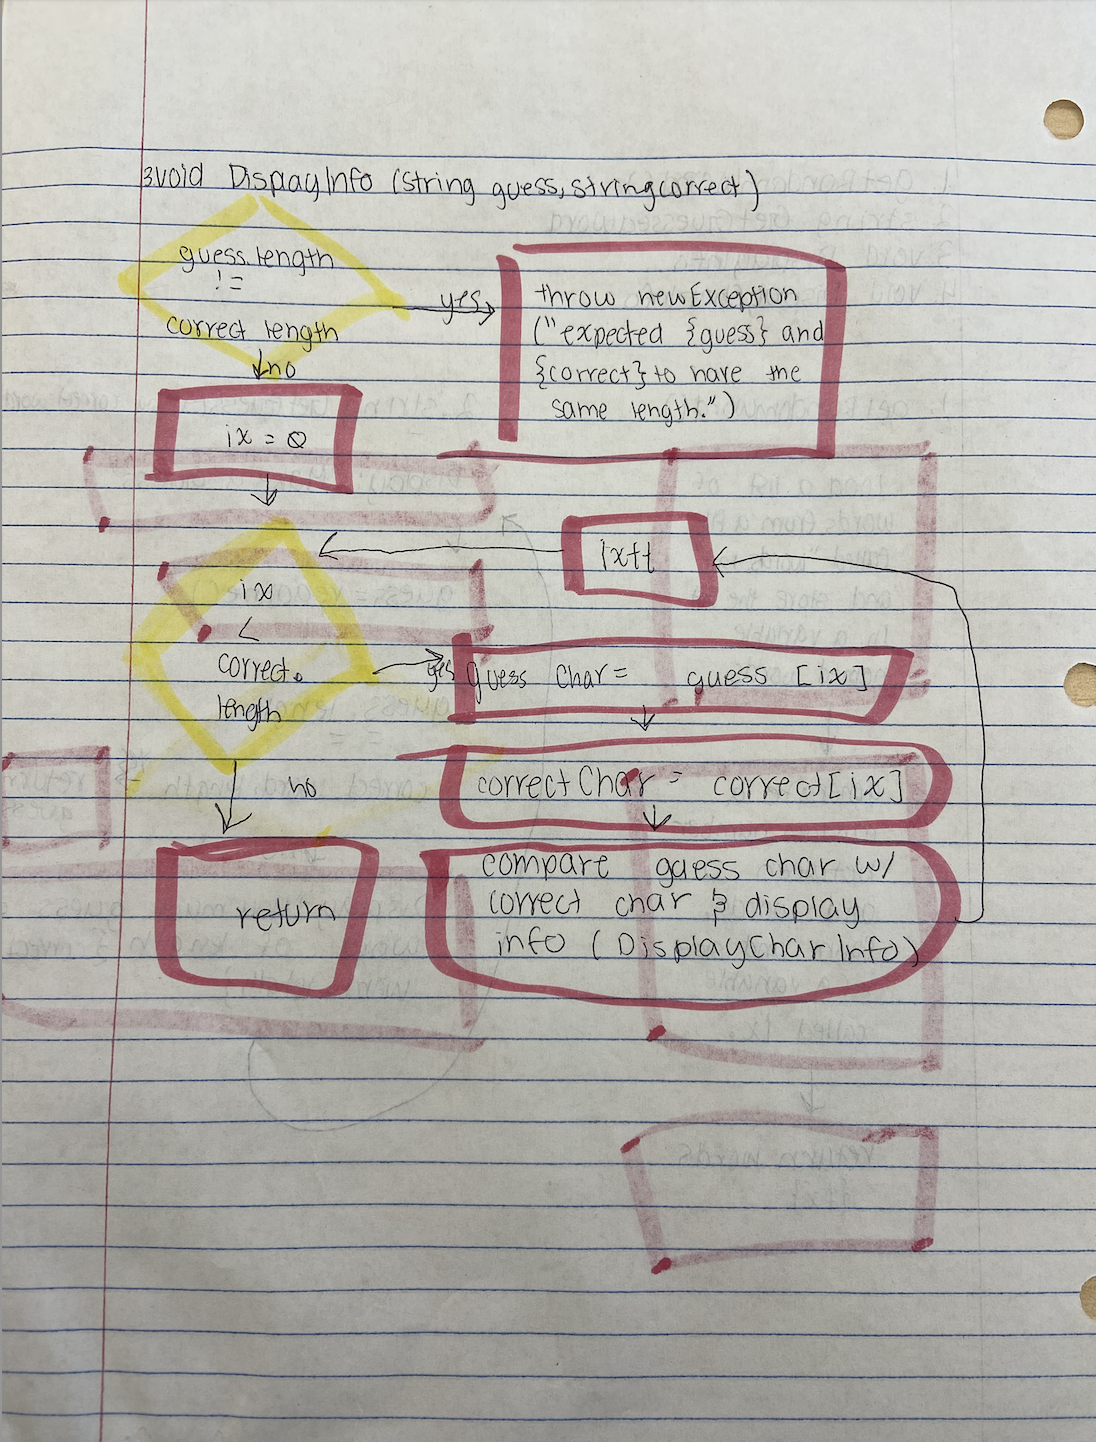 3void DisplayInfo (string guess, string correct)
guess.length
!=
correct length
yes
throw new Exception
("expected {guess} and
{correct} to have the
same length.")
no
ix = 0
ix++
ix
<
correct.
length
yes
guess Char = guess [ix]
no
correctChar = correct[ix]
compare guess char w/
correct char & display
info (DisplayCharInfo)
return